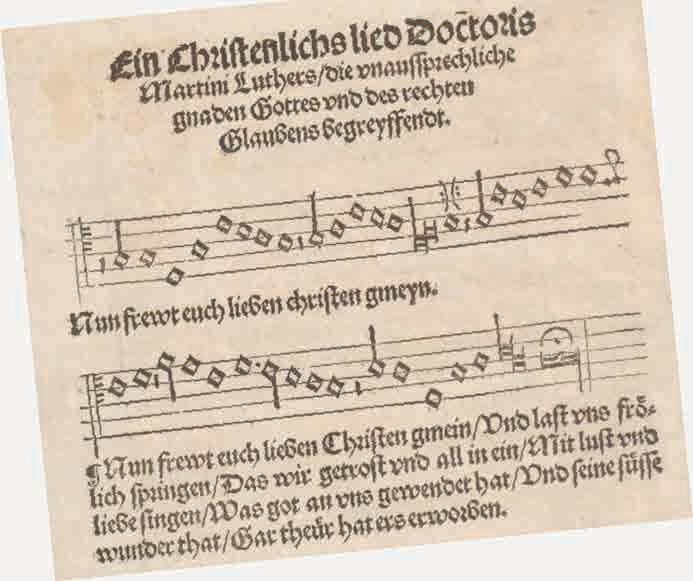 Ein Christenlichs lied Doctoris
Martini Luthers/die vnaussprechliche
gnaden Gottes vnd des rechten
Glaubens begreyffendt.
Nun frewt euch lieben christen gmeyn.
¶ Nun frewt euch lieben Christen gmein/Vnd last vns frö-
lich springen/Das wir getrost vnd all in ein/Mit lust vnd
liebe singen/Was got an vns gewendet hat/Vnd seine süsse
wunder that/Gar theür hat ers erworben.